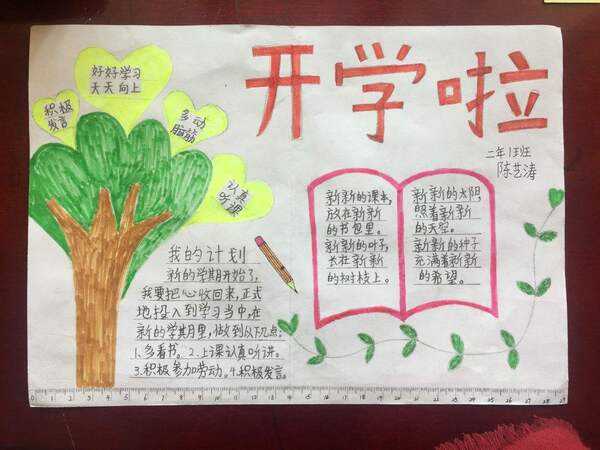 开学啦
二年1班
陈艺涛
好好学习
天天向上
积极
发言
多动
脑筋
认真
听课
我的计划
新的学期开始了,
我要把心收回来,正式
地投入到学习当中,在
新的学期里,做到以下几点:
1.多看书。2.上课认真听讲。
3.积极参加劳动。4.积极发言。
新新的课本,
放在新新
的书包里。
新新的叶子,
长在新新
的树枝上。
新新的太阳,
照着新新
的天空。
新新的种子
充满着新新
的希望。
0 1 2 3 4 5 6 7 8 9 10 11 12 13 14 15 16 17 18 19 20 21 22 23 24 25 26 27 28 29